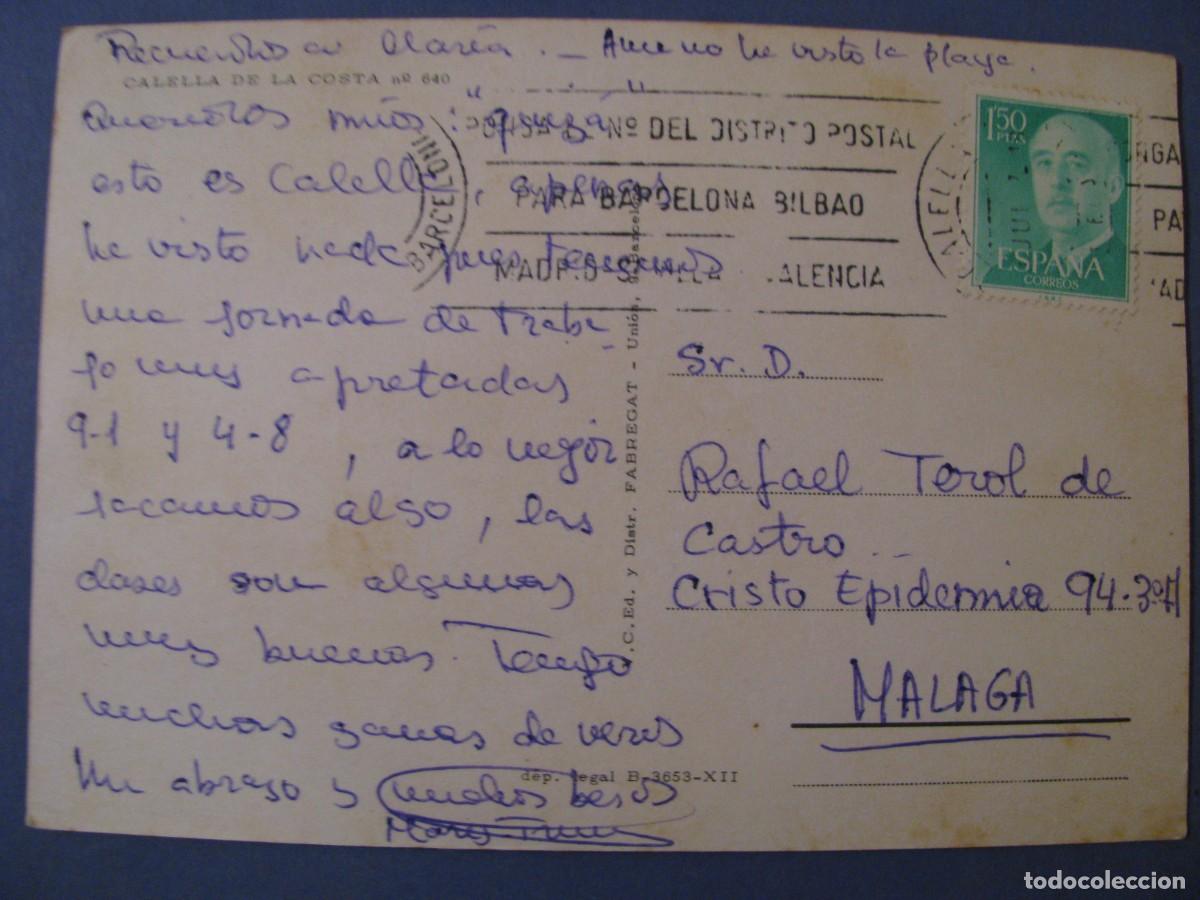 Recuerdos a María. — Aun no he visto la playa.
CALELLA DE LA COSTA nº 640
Queridos míos: "quizá"
esto es Calella, apenas
he visto nada pues tenemos
una jornada de traba-
jo muy apretadas
9-1 y 4-8, a lo mejor
sacamos algo, las
clases son algunas
muy buenas. Tengo
muchas ganas de veros
Un abrazo y muchos besos
Mary
dép. legal B-3653-XII
.C. Ed. y Distr. FABREGAT - Unión, Barcelona
BARCELON
Nº DEL DISTRITO POSTAL
PARA BARCELONA BILBAO
MADRID SEVILLA VALENCIA
ALELL
JUL
1'50
PTAS
ESPAÑA
CORREOS
ONGA
PA
AD
Sr. D.
Rafael Terol de
Castro
Cristo Epidemia 94-3ºA
MALAGA
todocoleccion